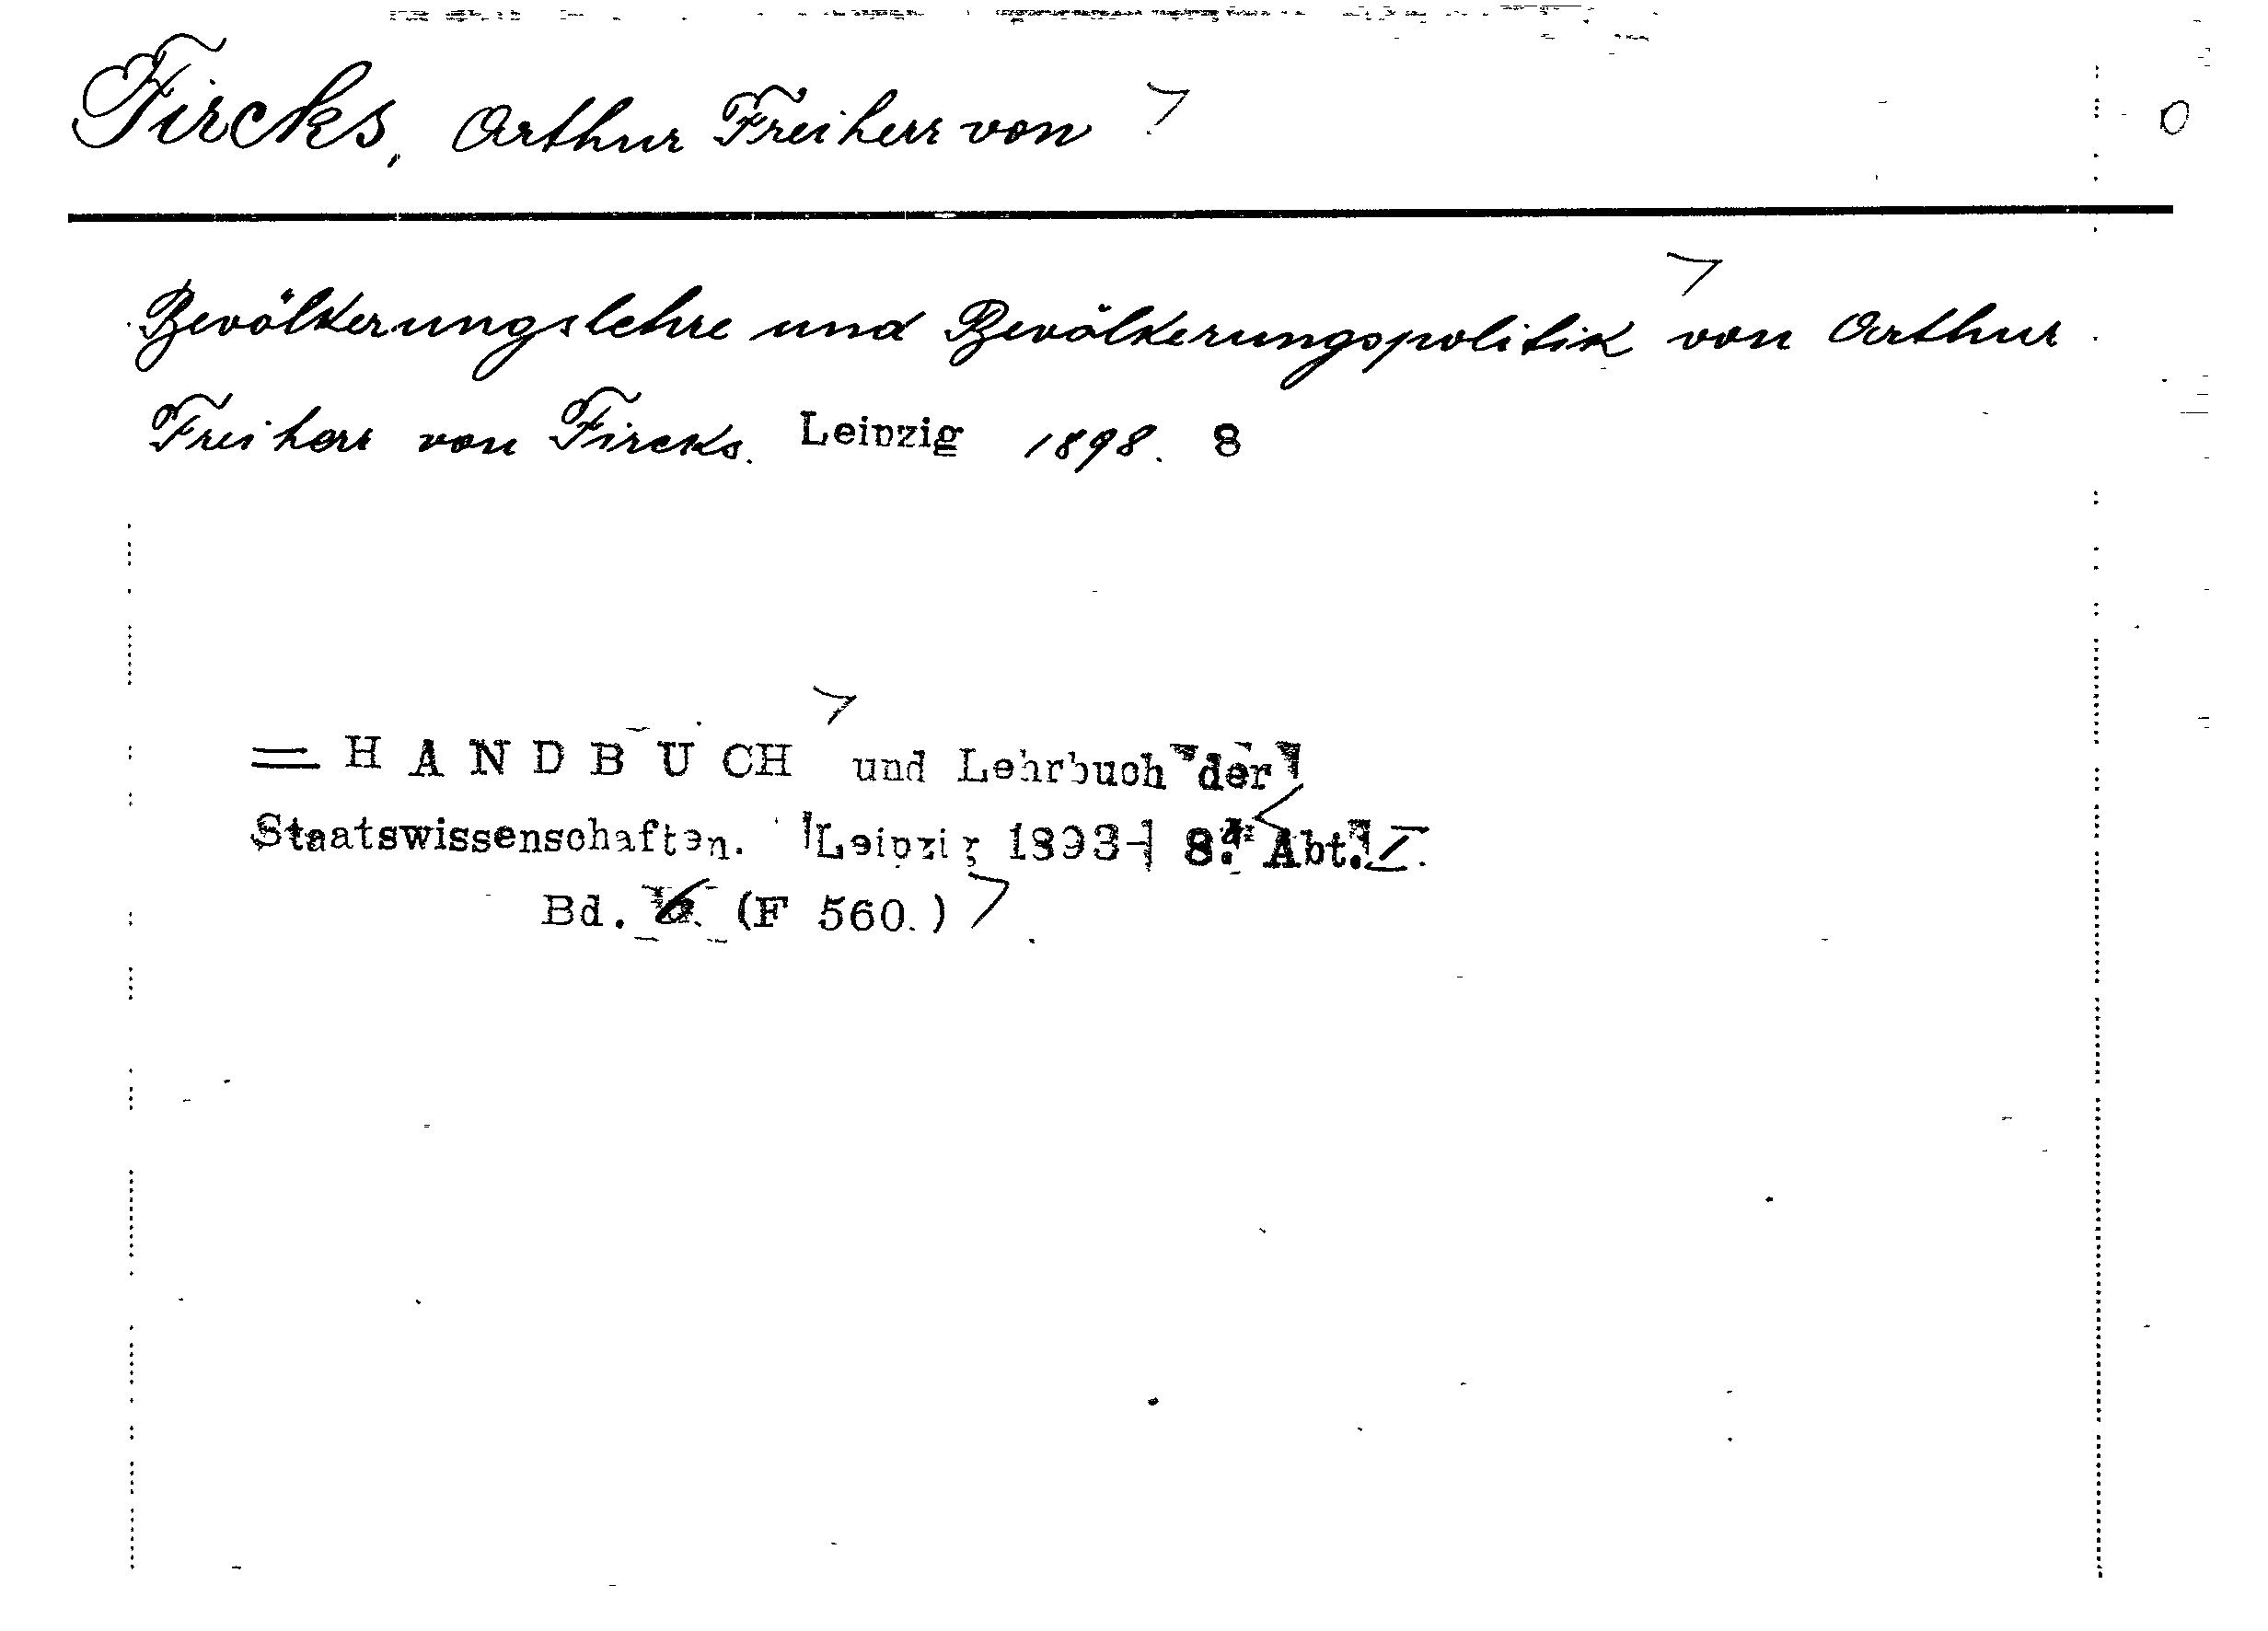 Fircks, Arthur Freiherr von
Bevölkerungslehre und Bevölkerungspolitik von Arthur
Freiherr von Fircks. Leipzig 1898. 8
= HANDBUCH und Lehrbuch der
Staatswissenschaften. Leipzig 1893- 8. Abt. I.
Bd. 6. (F 560.)